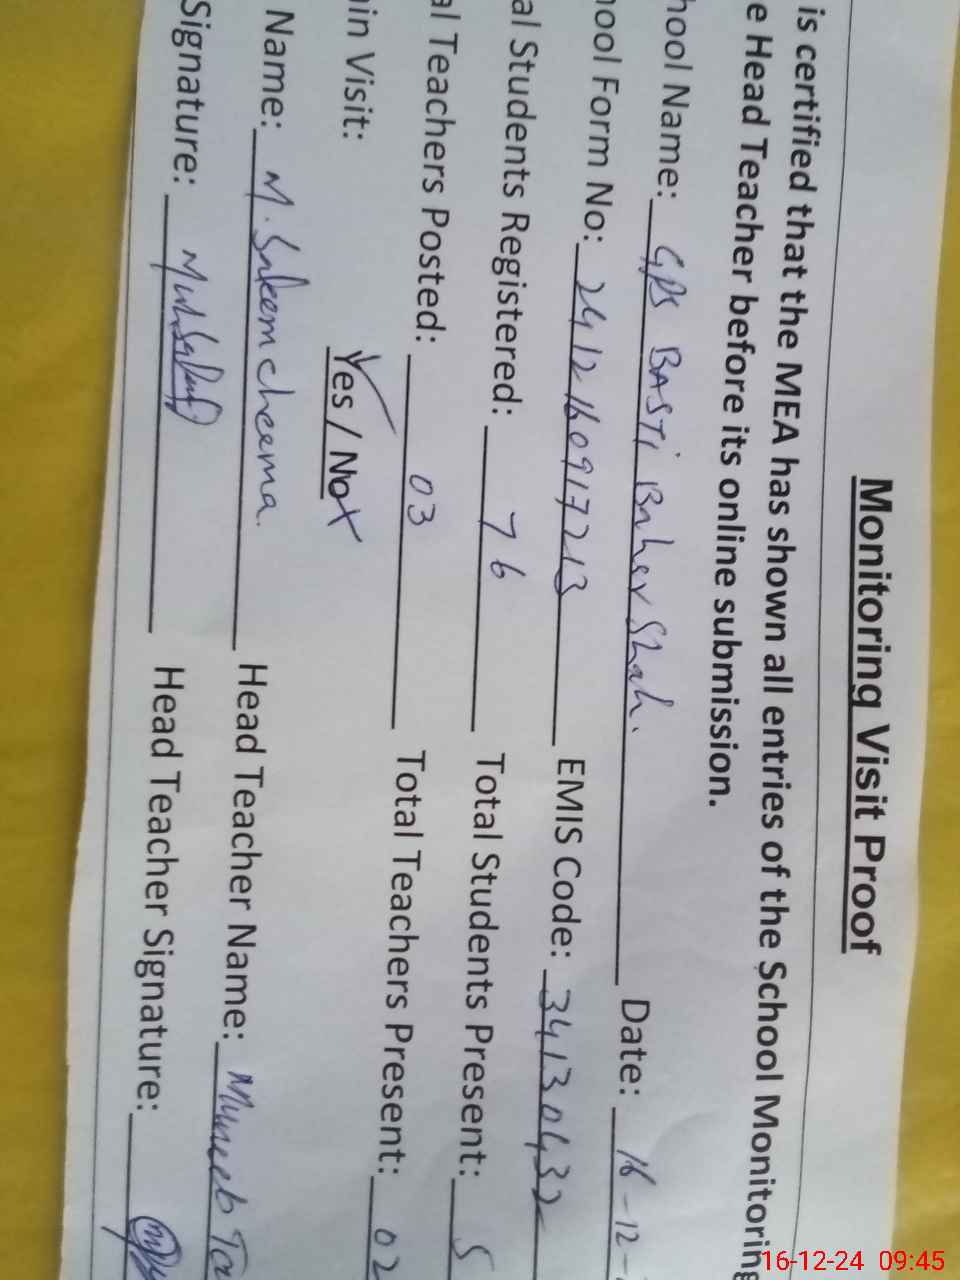 Monitoring Visit Proof
is certified that the MEA has shown all entries of the School Monitoring
e Head Teacher before its online submission.
hool Name: GPS BASTI Baher Shah. Date: 16-12-
hool Form No: 2412160917213 EMIS Code: 34130432
al Students Registered: 76 Total Students Present: 5
al Teachers Posted: 03 Total Teachers Present: 02
in Visit: Yes / No
Name: M. Saleem cheema. Head Teacher Name: Muneeb
Signature: Head Teacher Signature:
16-12-24 09:45